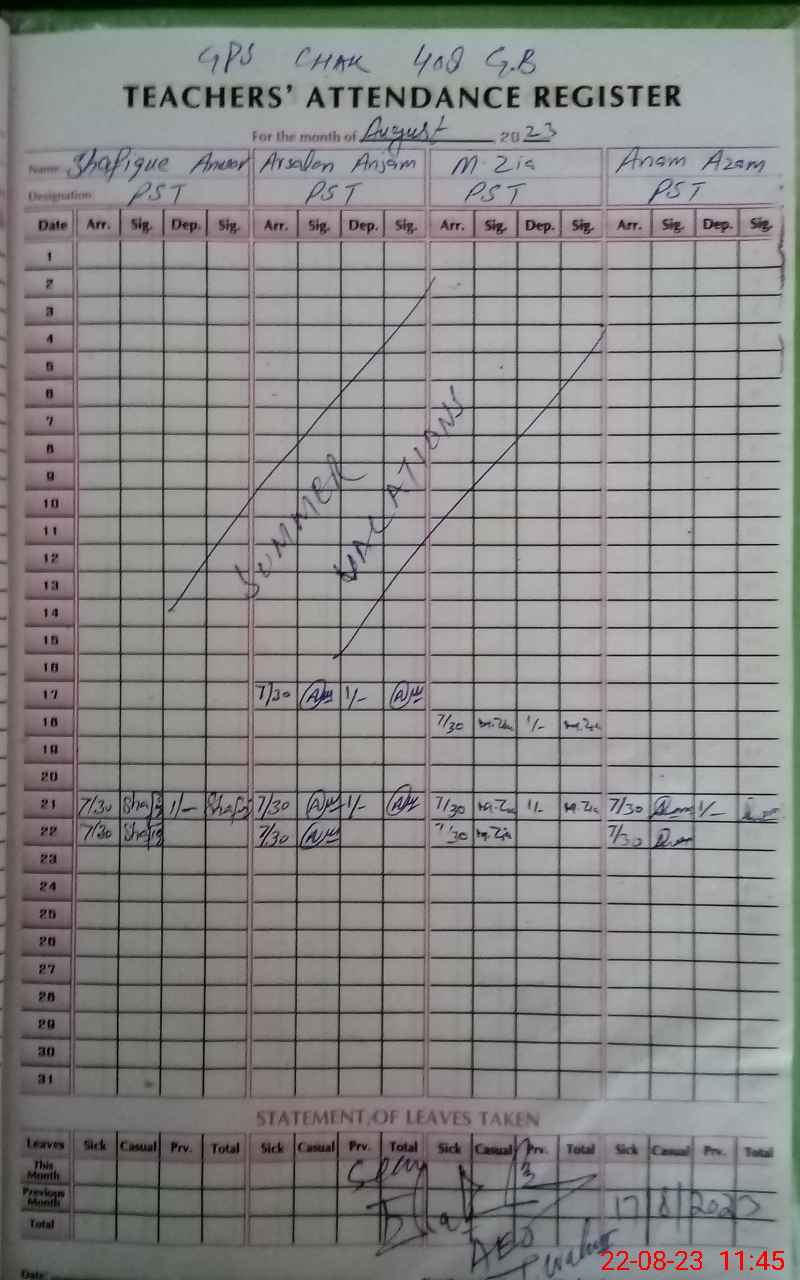 GPS CHAK 408 G.B
TEACHERS' ATTENDANCE REGISTER
For the month of August 2023
Name Shafique Anwar Arsalan Anjam M. Zia Anam Azam
Designation PST PST PST PST
Date Arr. Sig. Dep. Sig. Arr. Sig. Dep. Sig. Arr. Sig. Dep. Sig. Arr. Sig. Dep. Sig.
1
2
3
4
5
6
7
8
9
10
11
12
13
14
15
16
SUMMER
VACATIONS
17 7/30 1/-
18 7/30 M.Zia 1/- M.Zia
19
20
21 7/30 Shafiq 1/- Shafiq 7/30 1/- 7/30 M.Zia 1/- M.Zia 7/30 1/-
22 7/30 Shafiq 7/30 7/30 M.Zia 7/30
23
24
25
26
27
28
29
30
31
STATEMENT OF LEAVES TAKEN
Leaves Sick Casual Prv. Total Sick Casual Prv. Total Sick Casual Prv. Total Sick Casual Prv. Total
This Month
Previous Month 17/8/2023
Total
AEO
Date:
22-08-23 11:45